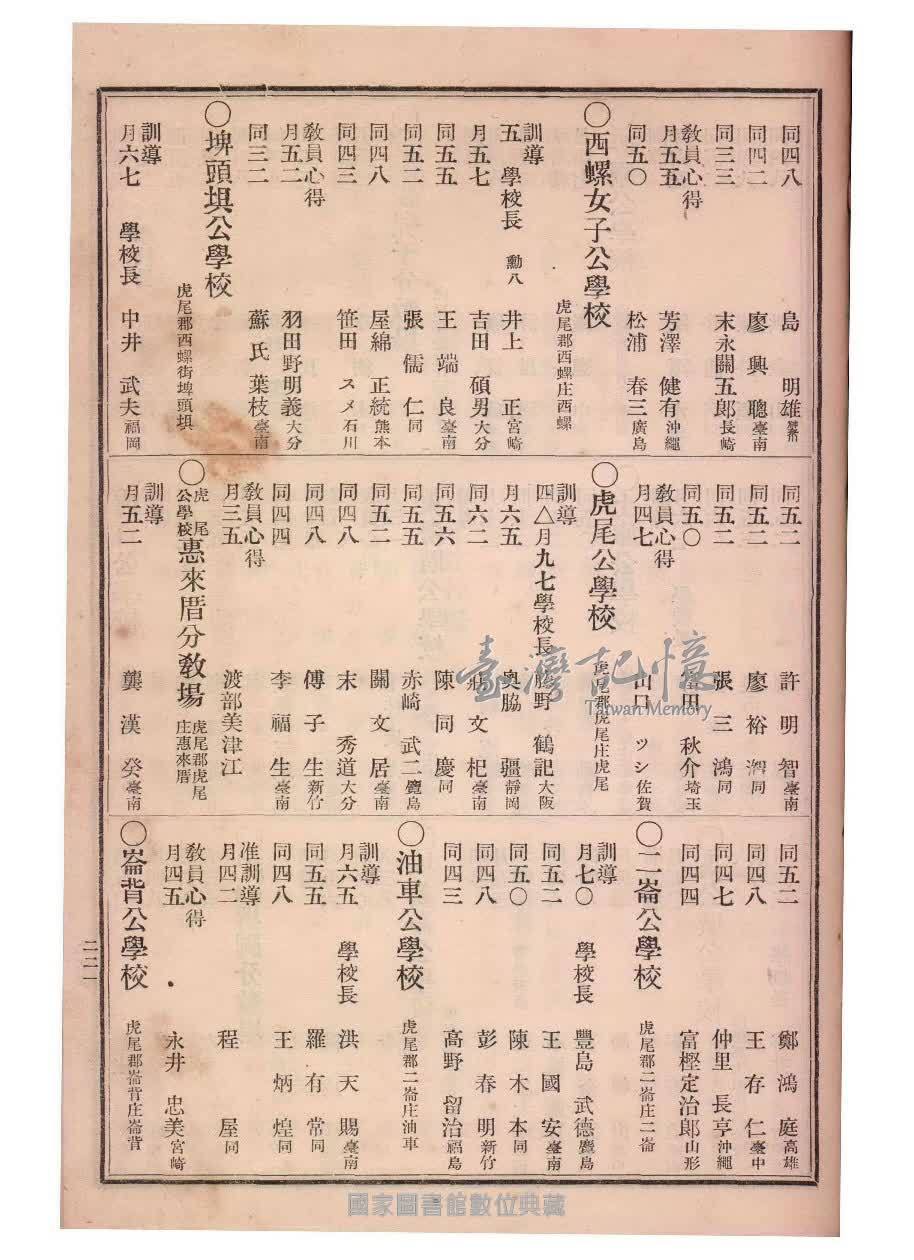 同四八 島 明雄
同四二 廖興聰 臺南
同三三 末永關五郎 長崎
教員心得
月五五 芳澤健有 沖繩
同五〇 松浦春三 廣島
〇西螺女子公學校 虎尾郡西螺庄西螺
訓導
五 學校長 勳八 井上 正 宮崎
月五七 吉田碩男 大分
同五五 王端良 臺南
同五二 張儒仁 同
同四八 屋綿正統 熊本
同四三 笹田スメ 石川
教員心得
月五二 羽田野明義 大分
同三二 蘇氏葉枝 臺南
〇埤頭埧公學校 虎尾郡西螺街埤頭埧
訓導
月六七 學校長 中井武夫 福岡
同五二 許明智 臺南
同五二 廖裕 同
同五二 張三鴻 同
同五〇 富田秋介 埼玉
教員心得
月四七 山口ツシ 佐賀
〇虎尾公學校 虎尾郡虎尾庄虎尾
訓導
四△月九七 學校長 野鶴記 大阪
月六五 奧脇疆 靜岡
同六二 文杞 臺南
同五六 陳同慶 同
同五五 赤崎武二 鹿島
同五二 關文居 臺南
同四八 末秀道 大分
同四八 傅子生 新竹
同四四 李福生 臺南
教員心得
月三五 渡部美津江
〇虎尾公學校惠來厝分教場 虎尾郡虎尾庄惠來厝
訓導
月五二 龔漢癸 臺南
同五二 鄭鴻庭 高雄
同四八 王存仁 臺中
同四七 仲里長亨 沖繩
同四四 富樫定治郎 山形
〇二崙公學校 虎尾郡二崙庄二崙
訓導
月七〇 學校長 豐島武德 鹿島
同五二 王國安 臺南
同五〇 陳木本 同
同四八 彭春明 新竹
同四三 高野留治 福島
〇油車公學校 虎尾郡二崙庄油車
訓導
月六五 學校長 洪天賜 臺南
同五五 羅有常 同
同四八 王炳煌 同
准訓導
月四二 程屋 同
教員心得
月四五 永井忠美 宮崎
〇崙背公學校 虎尾郡崙背庄崙背
二二一
臺灣記憶
Taiwan Memory
國家圖書館數位典藏